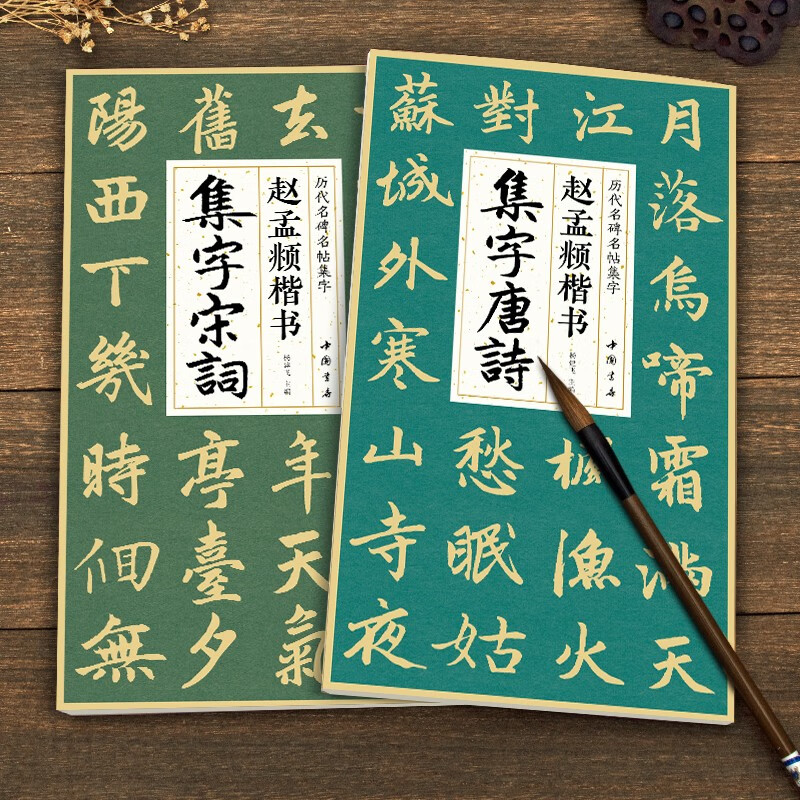 历代名碑名帖集字
赵孟𫖯楷书
集字唐詩
杨建飞 主编
中國書店
月落烏啼霜滿天
江楓漁火
對愁眠姑
蘇城外寒山寺夜
历代名碑名帖集字
赵孟𫖯楷书
集字宋詞
杨建飞 主编
中國書店
去年天氣
舊亭臺夕
陽西下幾時佪無